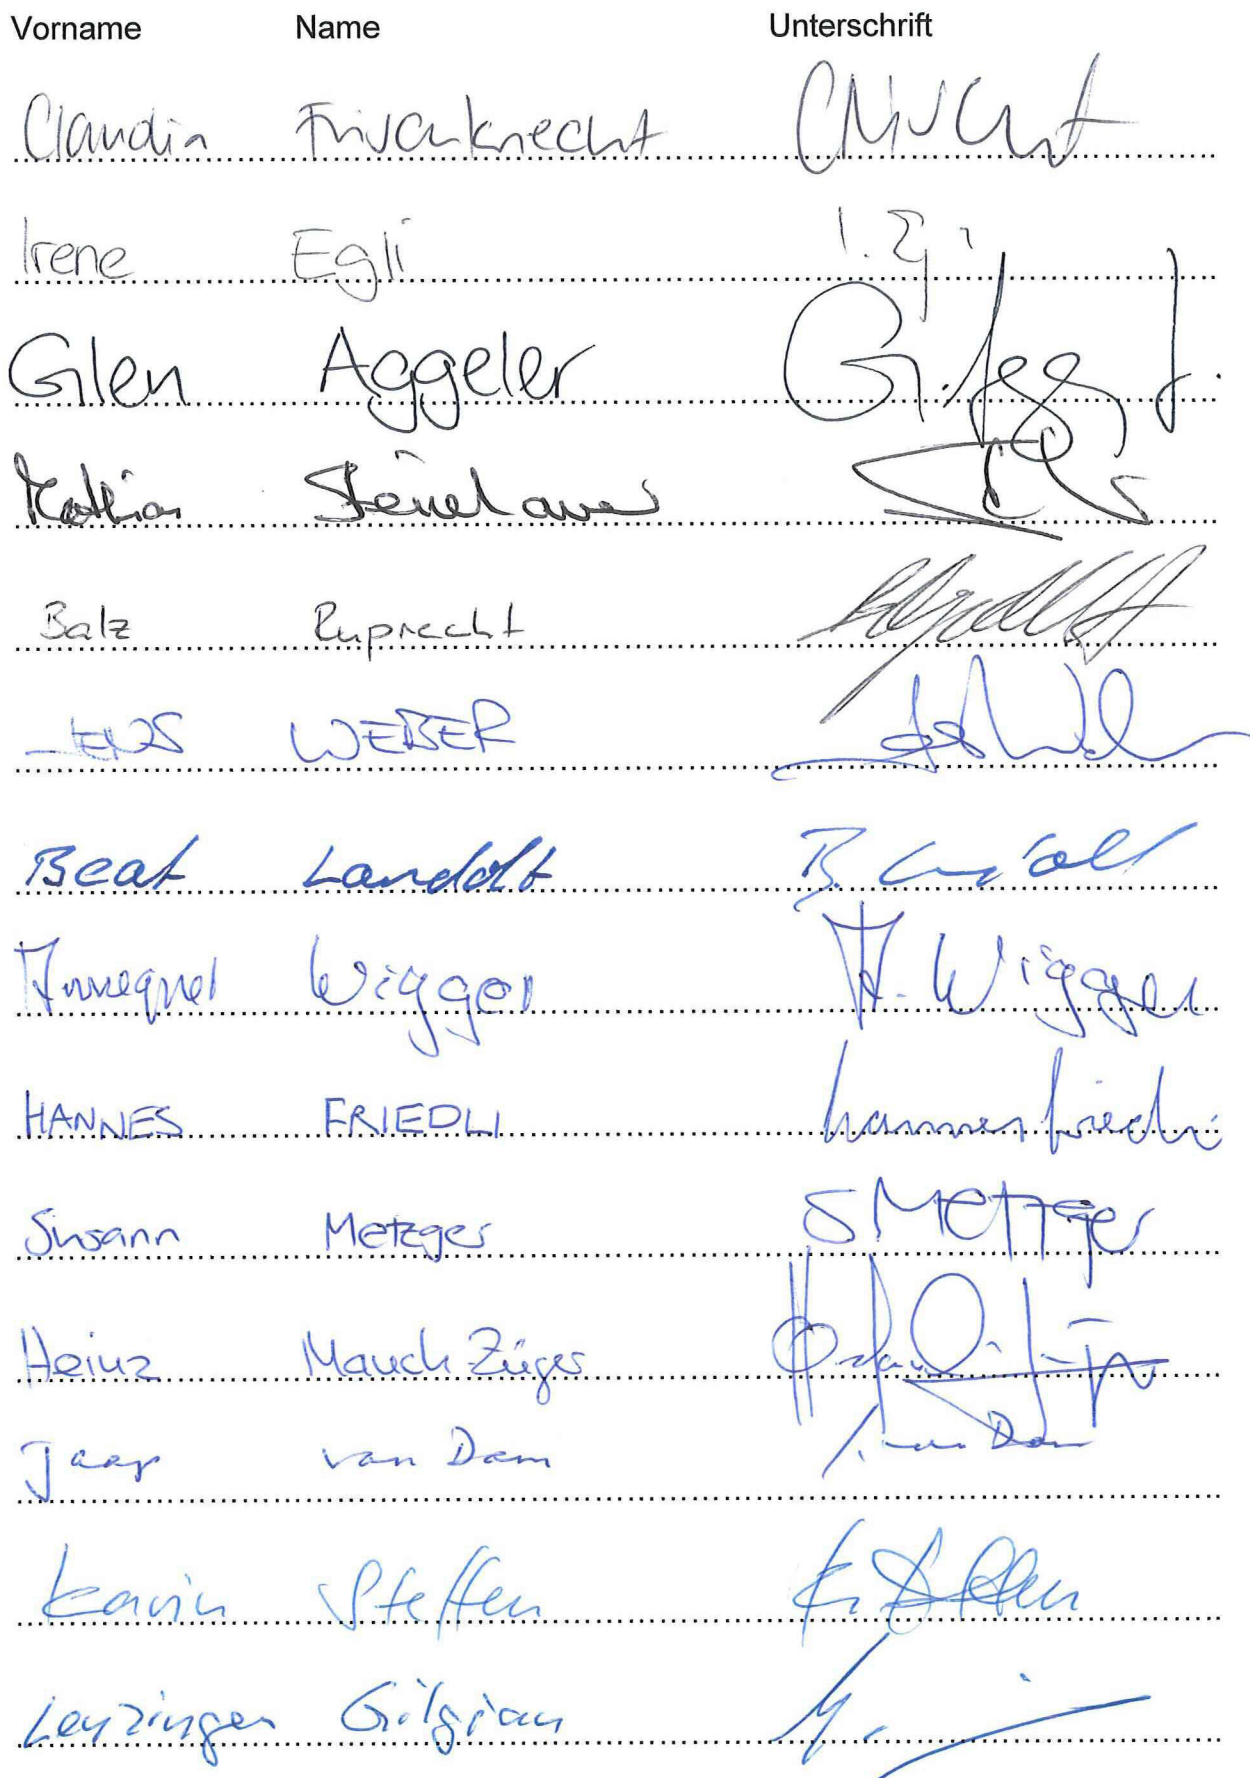 Vorname Name Unterschrift
Claudia Frischknecht
Irene Egli I. Egli
Glen Aggeler G. Agg
Mathias
Balz Ruprecht
JENS WEBER
Beat Landolt B. Landolt
Annegret Wigger A. Wigger
HANNES FRIEDLI hannes friedli
Susann Metzger S Metzger
Heinz Mauch Züger
Jaap van Dam van Dam
Karin Steffen K. Steffen
Leuzinger Gilgian